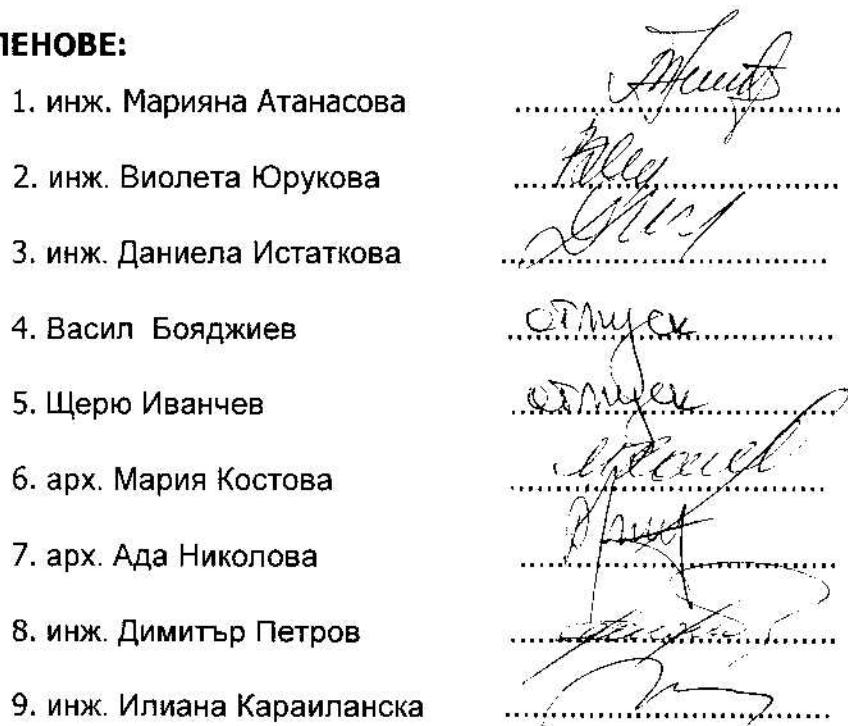 ЛЕНОВЕ:
1. инж. Марияна Атанасова
2. инж. Виолета Юрукова
3. инж. Даниела Истаткова
4. Васил Бояджиев отпуск
5. Щерю Иванчев отпуск
6. арх. Мария Костова
7. арх. Ада Николова
8. инж. Димитър Петров
9. инж. Илиана Караиланска